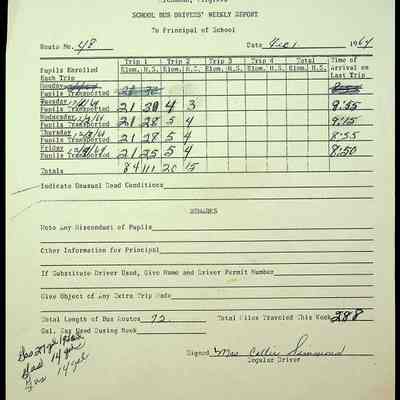 Richmond, Virginia
SCHOOL BUS DRIVERS' WEEKLY REPORT
To Principal of School
Route No. 48 Date Dec 1 1964
Trip 1 Trip 2 Trip 3 Trip 4 Total Time of
Pupils Enrolled Elem. H.S. Elem. H.S. Elem. H.S. Elem. H.S. Elem. H.S. Arrival on
Each Trip Last Trip
Monday
Pupils Transported 8:55
Tuesday
Pupils Transported 21 30 4 3 9:55
Wednesday
Pupils Transported 21 28 5 4 9:15
Thursday
Pupils Transported 21 28 5 4 8:55
Friday
Pupils Transported 21 25 5 4 8:50
Totals 84 111 20 15
Indicate Unusual Road Conditions
REMARKS
Note Any Misconduct of Pupils
Other Information for Principal
If Substitute Driver Used, Give Name and Driver Permit Number
Give Object of Any Extra Trip Made
Total Length of Bus Routes 72 Total Miles Traveled This Week 288
Gal. Gas Used During Week
14 gal
Gas 14 gal
Signed Mrs. Callie
Regular Driver